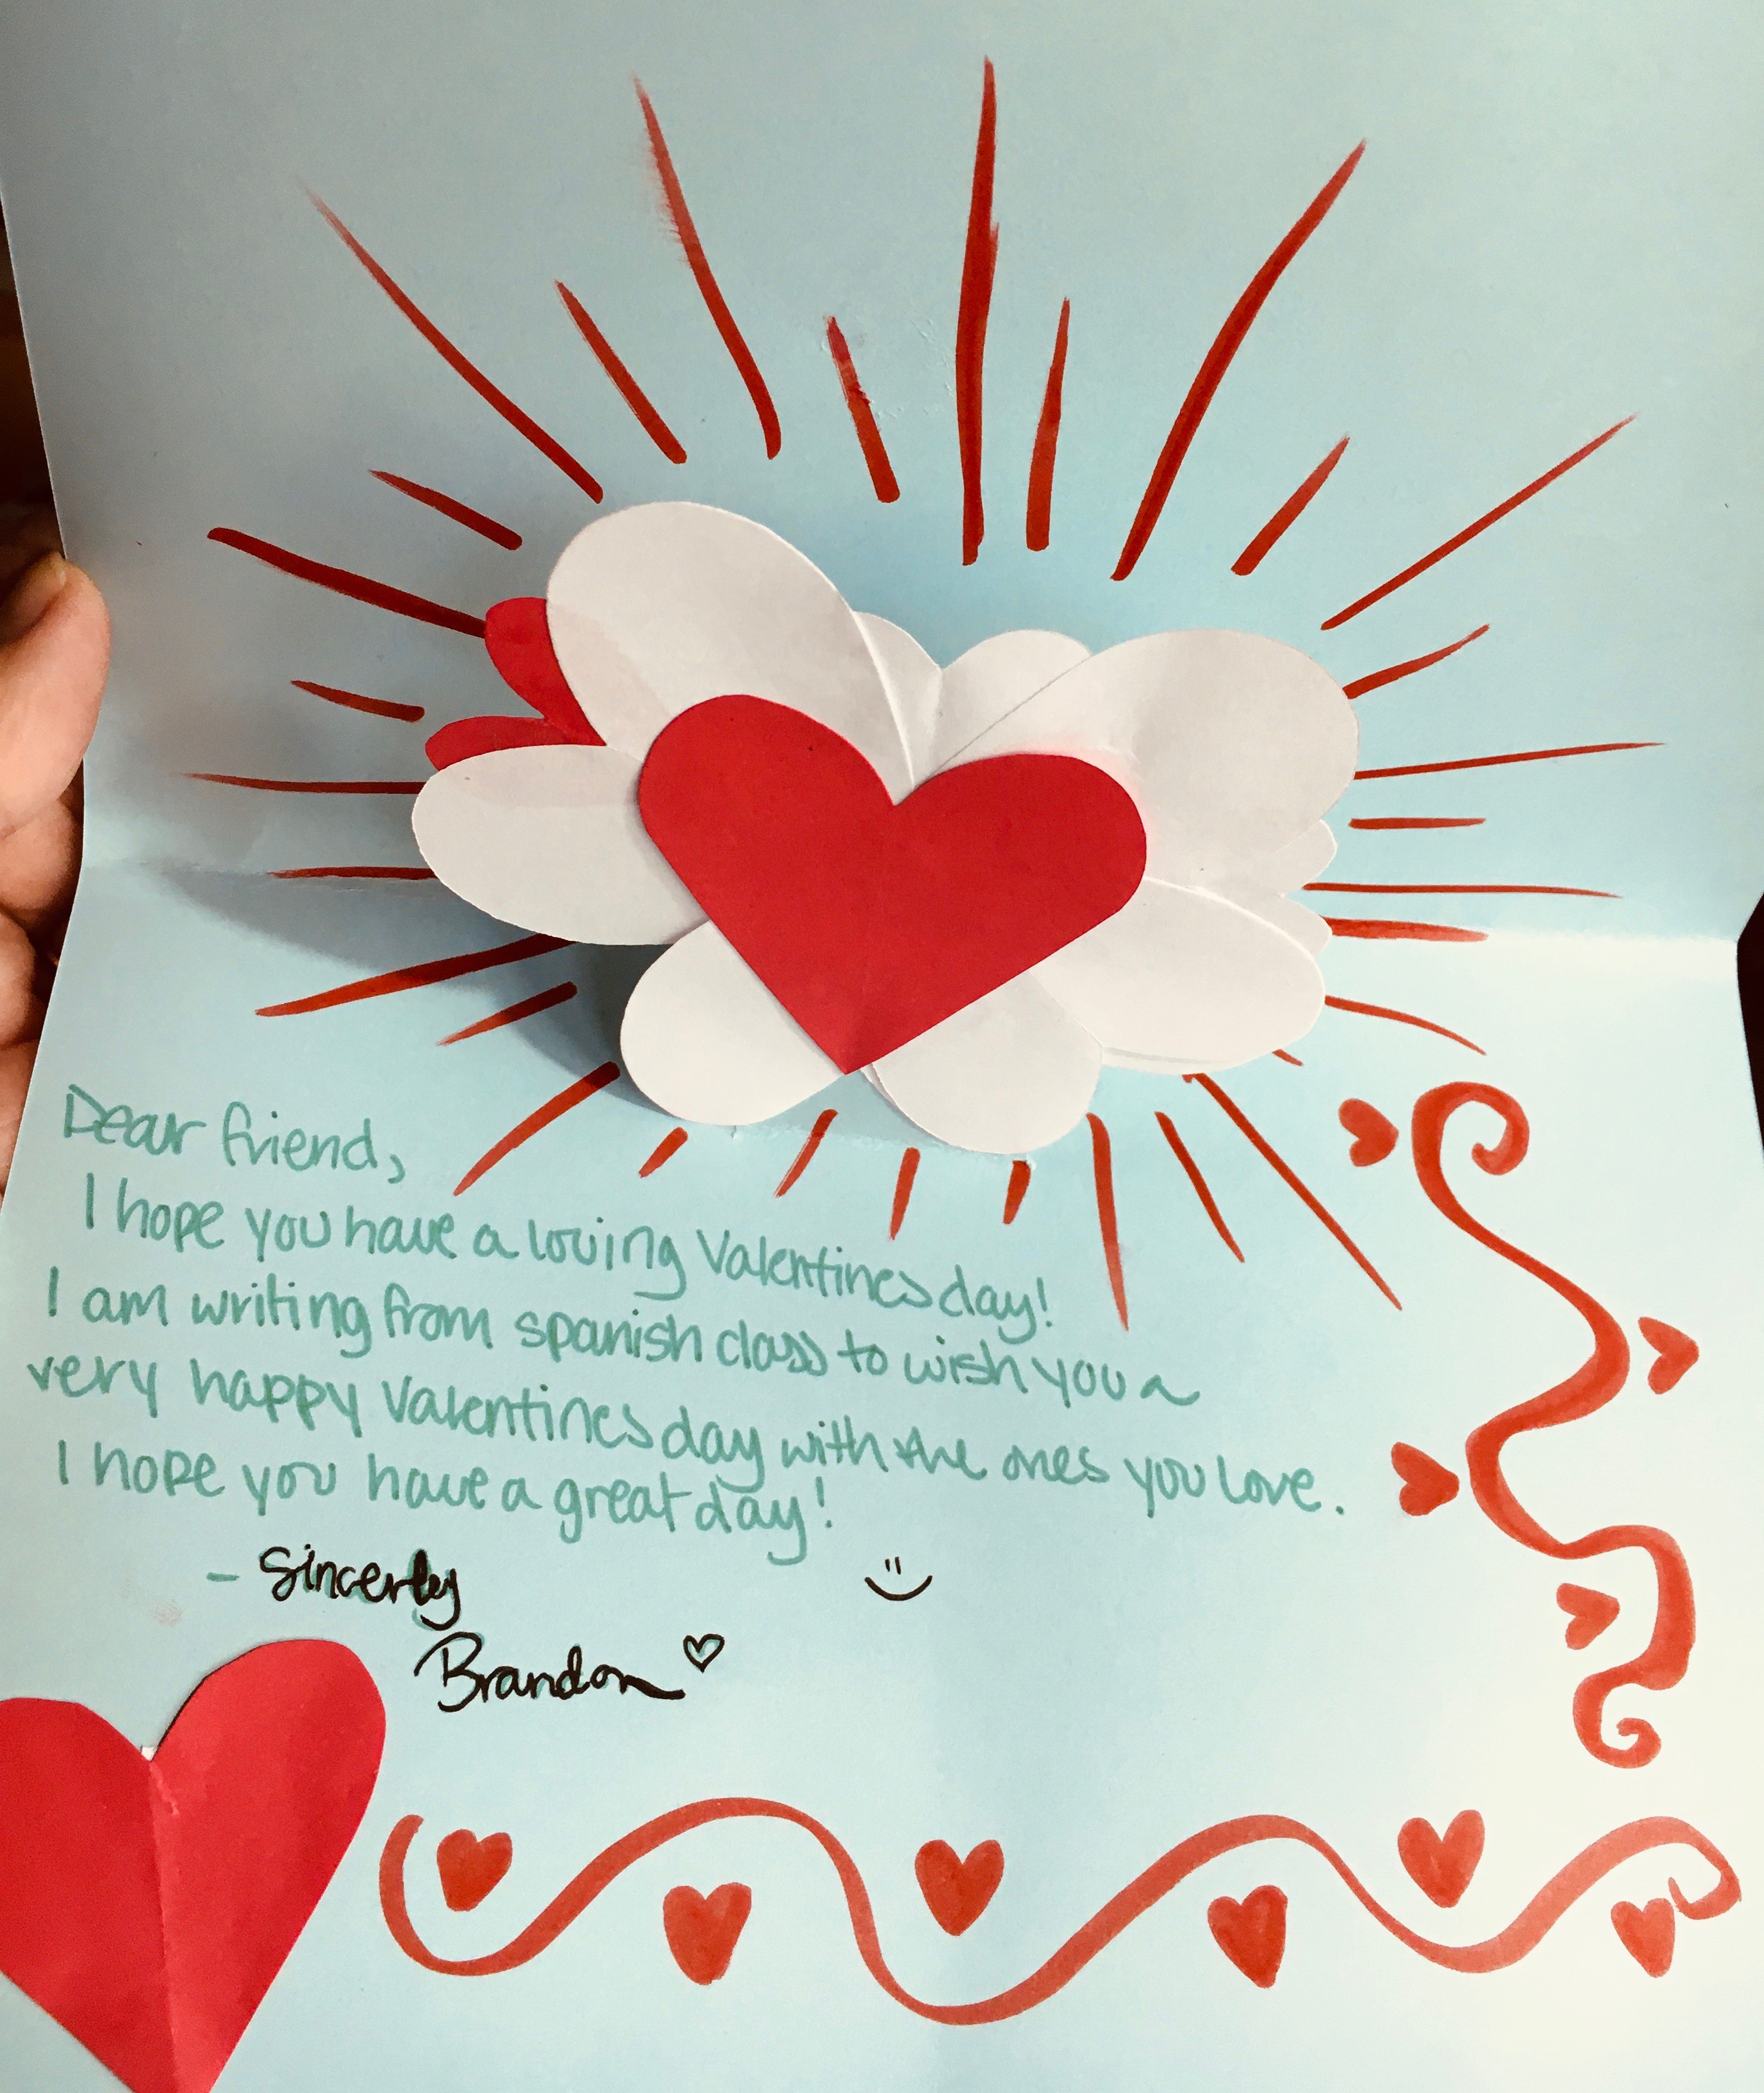 Dear friend,
I hope you have a loving Valentines day!
I am writing from spanish class to wish you a
very happy Valentines day with the ones you love.
I hope you have a great day!
- Sincerly
Brandon